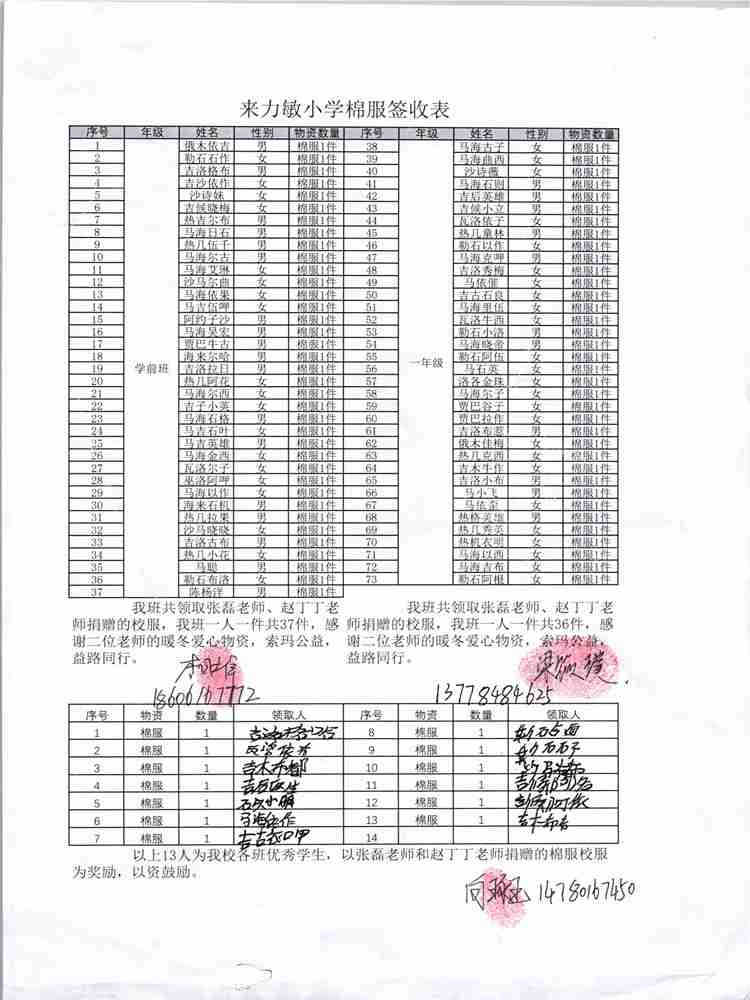 来力敏小学棉服签收表
序号 年级 姓名 性别 物资数量 序号 年级 姓名 性别 物资数量
1 俄木依吉 男 棉服1件 38 马海古子 女 棉服1件
2 勒石石作 女 棉服1件 39 马海曲西 女 棉服1件
3 吉洛格布 男 棉服1件 40 沙诗薇 女 棉服1件
4 吉沙依作 女 棉服1件 41 马海石则 男 棉服1件
5 沙诗妹 女 棉服1件 42 吉后英雄 男 棉服1件
6 吉候晓梅 女 棉服1件 43 吉候小立 男 棉服1件
7 热吉尔布 男 棉服1件 44 瓦洛依子 女 棉服1件
8 马海日石 男 棉服1件 45 热几童林 男 棉服1件
9 热几伍千 男 棉服1件 46 勒石以作 女 棉服1件
10 马海尔古 男 棉服1件 47 马海克呷 男 棉服1件
11 马海艾琳 女 棉服1件 48 吉洛秀梅 女 棉服1件
12 沙马尔曲 女 棉服1件 49 马依催 女 棉服1件
13 马海依果 女 棉服1件 50 吉古石良 女 棉服1件
14 马吉伍呷 女 棉服1件 51 马海里伍 女 棉服1件
15 阿约子沙 男 棉服1件 52 瓦洛牛西 女 棉服1件
16 马海昊宏 男 棉服1件 53 勒石小洛 男 棉服1件
17 贾巴牛古 男 棉服1件 54 马海晓帝 男 棉服1件
18 海来尔哈 男 棉服1件 55 勒石阿伍 女 棉服1件
19 学前班 吉洛拉日 男 棉服1件 56 一年级 马石英 女 棉服1件
20 热几阿花 女 棉服1件 57 洛各金珠 女 棉服1件
21 马海尔西 女 棉服1件 58 马海尔子 女 棉服1件
22 吉子小英 女 棉服1件 59 贾巴谷子 女 棉服1件
23 马海石格 男 棉服1件 60 贾巴拉作 女 棉服1件
24 马吉石叶 女 棉服1件 61 吉洛布惹 男 棉服1件
25 马吉英雄 男 棉服1件 62 俄木佳梅 女 棉服1件
26 马海金西 女 棉服1件 63 热几克西 女 棉服1件
27 瓦洛尔子 女 棉服1件 64 吉木牛作 女 棉服1件
28 巫洛阿呷 女 棉服1件 65 吉洛小布 男 棉服1件
29 马海以作 女 棉服1件 66 马小飞 男 棉服1件
30 海来石机 男 棉服1件 67 马依歪 女 棉服1件
31 热几拉果 男 棉服1件 68 热格美雄 男 棉服1件
32 沙马晓晓 女 棉服1件 69 热几秀英 女 棉服1件
33 吉洛古布 男 棉服1件 70 热机衣明 女 棉服1件
34 热几小花 女 棉服1件 71 马海以西 女 棉服1件
35 马聪 男 棉服1件 72 马海吉布 男 棉服1件
36 勒石布洛 女 棉服1件 73 勒石阿根 男 棉服1件
37 陈杨洋 男 棉服1件
我班共领取张磊老师、赵丁丁老
师捐赠的校服，我班一人一件共37件，感
谢二位老师的暖冬爱心物资，索玛公益，
益路同行。
18606167772
我班共领取张磊老师、赵丁丁老
师捐赠的校服，我班一人一件共36件，感
谢二位老师的暖冬爱心物资，索玛公益，
益路同行。
13778484625
序号 物资 数量 领取人 序号 物资 数量 领取人
1 棉服 1 8 棉服 1
2 棉服 1 9 棉服 1
3 棉服 1 10 棉服 1
4 棉服 1 11 棉服 1
5 棉服 1 12 棉服 1
6 棉服 1 马海伍作 13 棉服 1 吉木布吉
7 棉服 1 14
以上13人为我校各班优秀学生，以张磊老师和赵丁丁老师捐赠的棉服校服
为奖励，以资鼓励。
14780167450